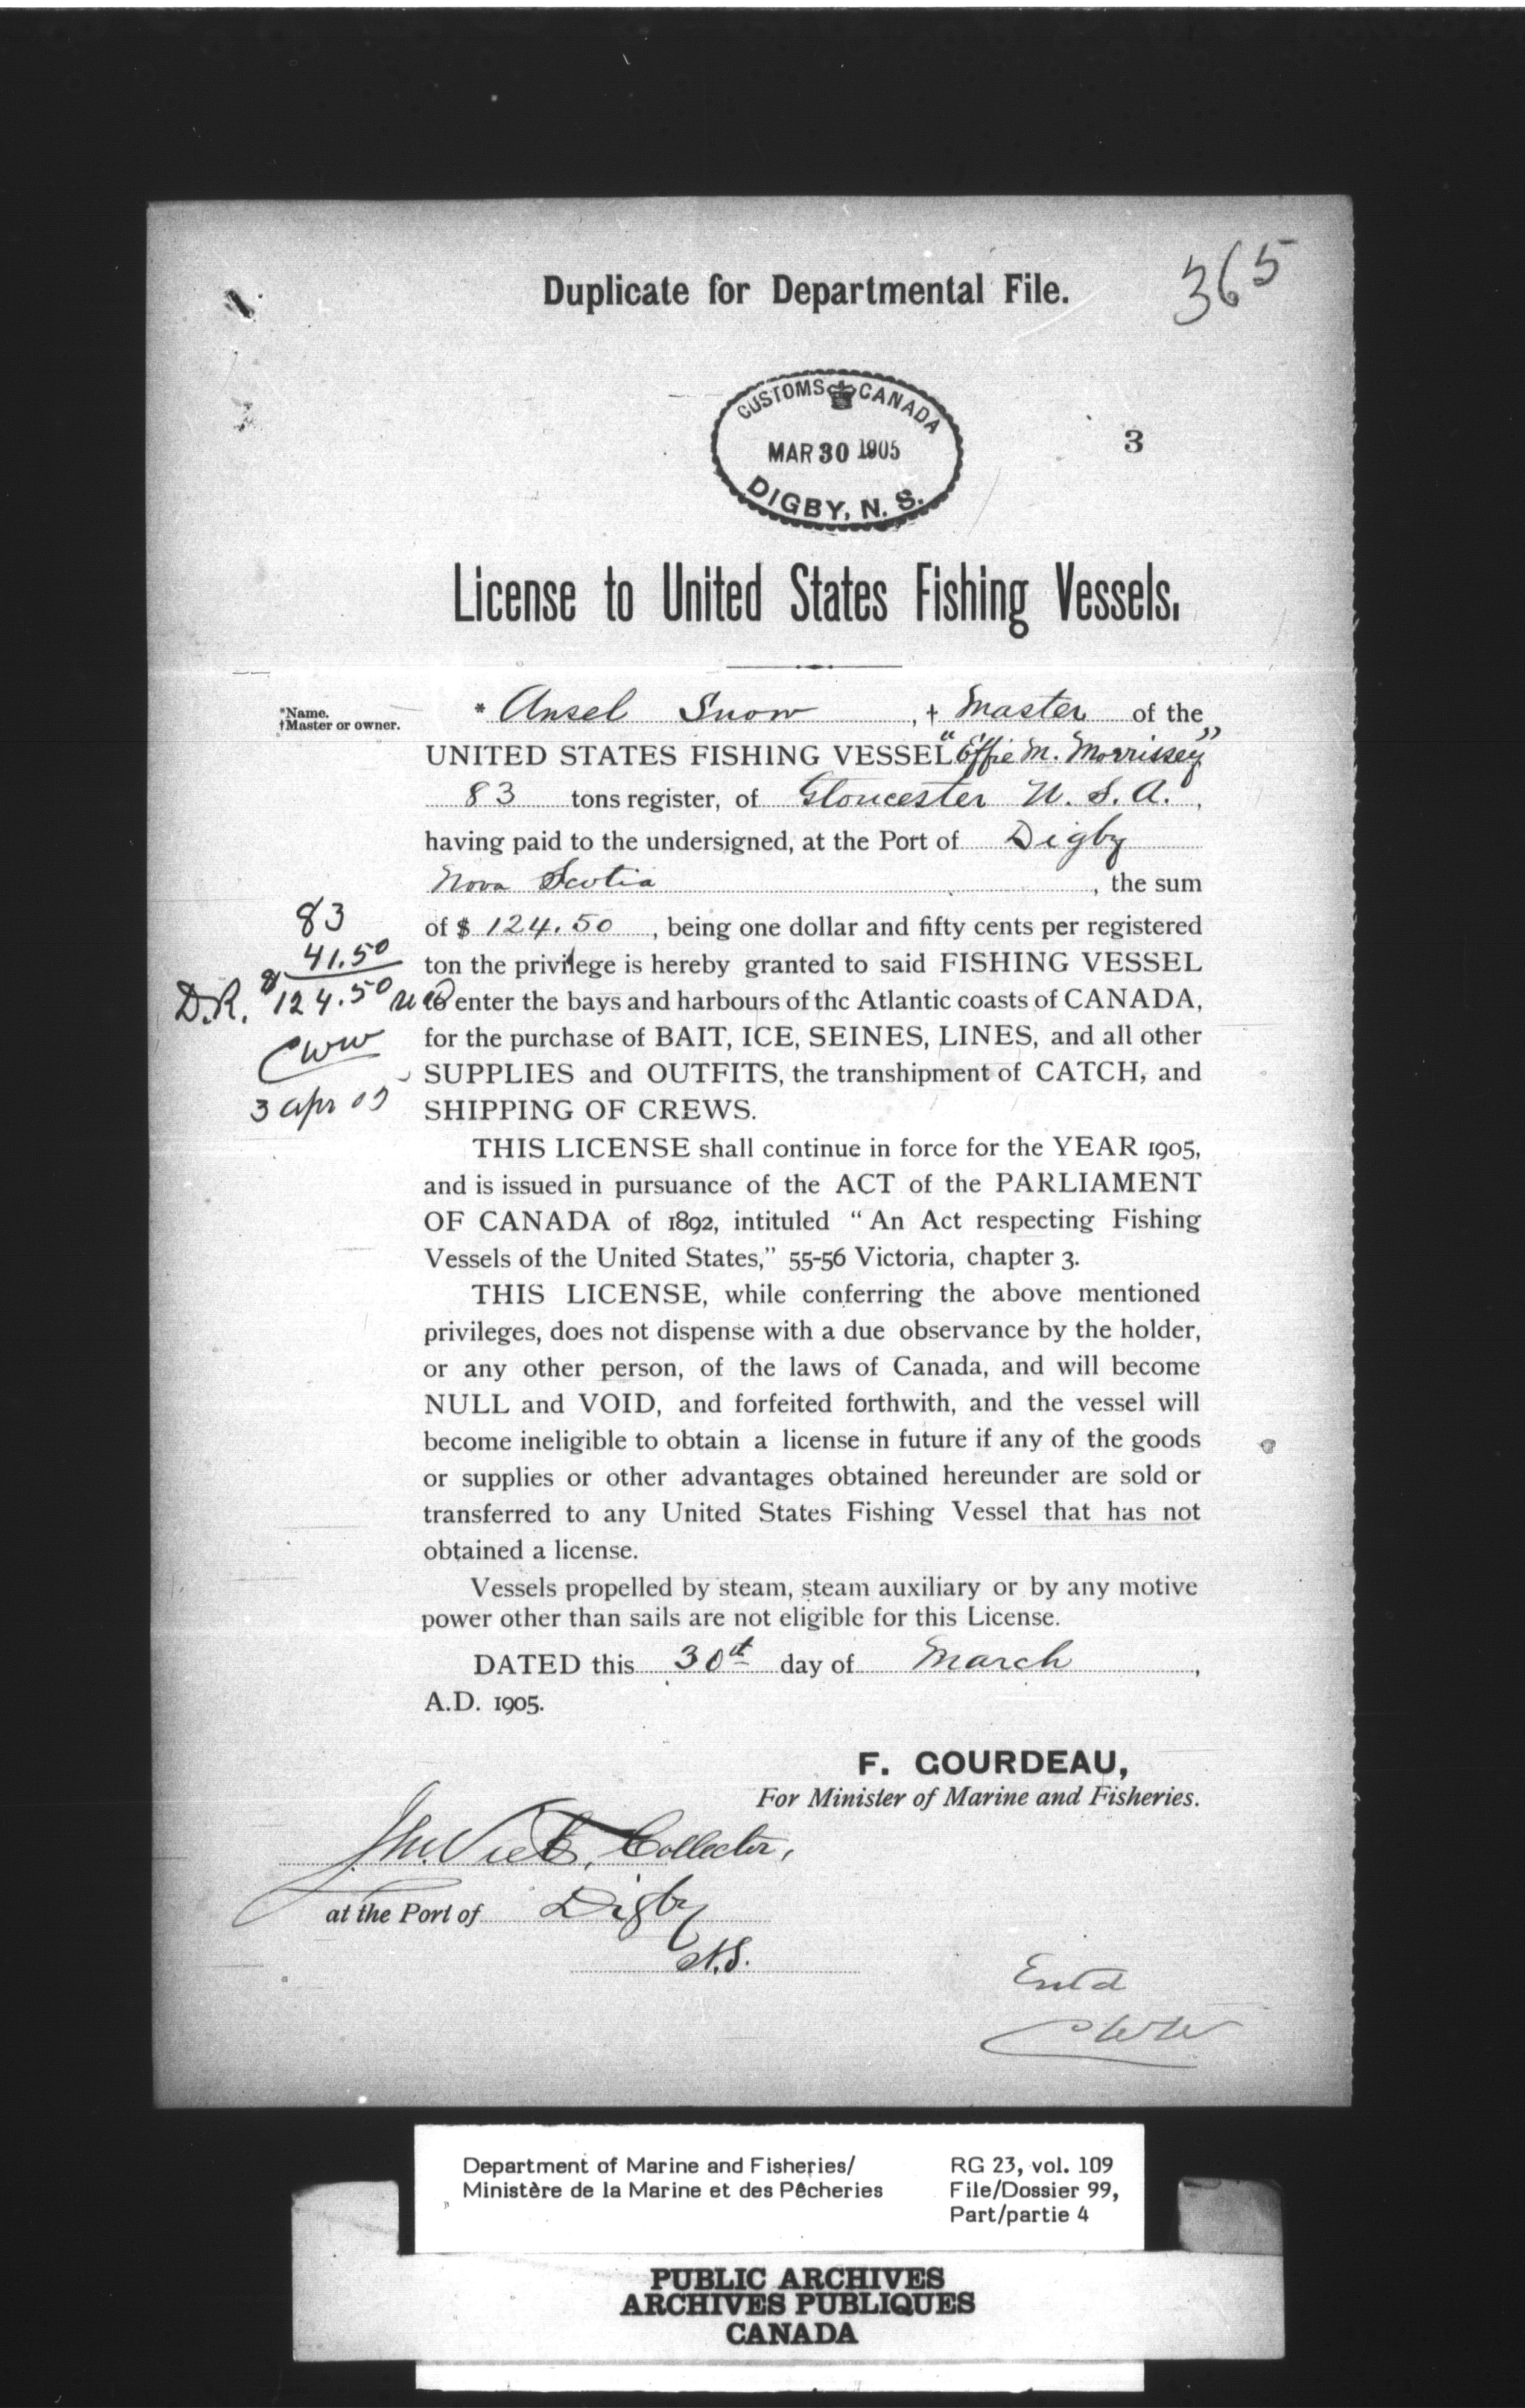 Duplicate for Departmental File.
365
CUSTOMS CANADA
MAR 30 1905
DIGBY, N. S.
3
License to United States Fishing Vessels.
*Name.
†Master or owner.
* Ansel Snow, † Master of the
UNITED STATES FISHING VESSEL "Effie M. Morrissey"
83 tons register, of Gloucester U. S. A.,
having paid to the undersigned, at the Port of Digby
Nova Scotia, the sum
of $ 124.50, being one dollar and fifty cents per registered
ton the privilege is hereby granted to said FISHING VESSEL
to enter the bays and harbours of the Atlantic coasts of CANADA,
for the purchase of BAIT, ICE, SEINES, LINES, and all other
SUPPLIES and OUTFITS, the transhipment of CATCH, and
SHIPPING OF CREWS.
83
41.50
D.R. $124.50
CWW
3 apr 05
THIS LICENSE shall continue in force for the YEAR 1905,
and is issued in pursuance of the ACT of the PARLIAMENT
OF CANADA of 1892, intituled "An Act respecting Fishing
Vessels of the United States," 55-56 Victoria, chapter 3.
THIS LICENSE, while conferring the above mentioned
privileges, does not dispense with a due observance by the holder,
or any other person, of the laws of Canada, and will become
NULL and VOID, and forfeited forthwith, and the vessel will
become ineligible to obtain a license in future if any of the goods
or supplies or other advantages obtained hereunder are sold or
transferred to any United States Fishing Vessel that has not
obtained a license.
Vessels propelled by steam, steam auxiliary or by any motive
power other than sails are not eligible for this License.
DATED this 30th day of March,
A.D. 1905.
F. GOURDEAU,
For Minister of Marine and Fisheries.
Collector,
at the Port of Digby
N.S.
Entd
CWW
Department of Marine and Fisheries/
Ministère de la Marine et des Pêcheries
RG 23, vol. 109
File/Dossier 99,
Part/partie 4
PUBLIC ARCHIVES
ARCHIVES PUBLIQUES
CANADA